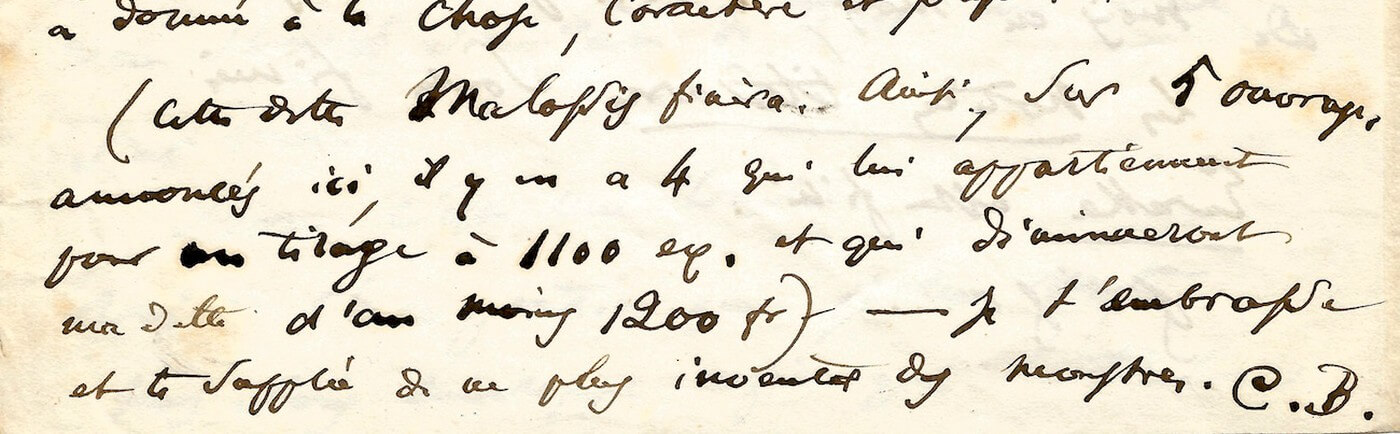 a donné à la chose, caractère et
(Cette dette Malassis finira. Ainsi, sur 5 ouvrages,
annoncés ici, il y en a 4 qui lui appartiennent
pour un tirage à 1100 ex. et qui diminueront
ma dette d'au moins 1200 fr) — je t'embrasse
et te supplie de ne plus inventer des monstres. C. B.